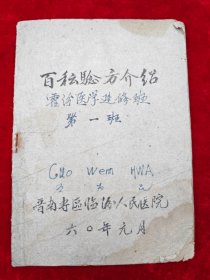 百种验方介绍
霍诊医学进修班
第一班
Guo Wem HWA
晋南专区临汾人民医院
六〇年元月